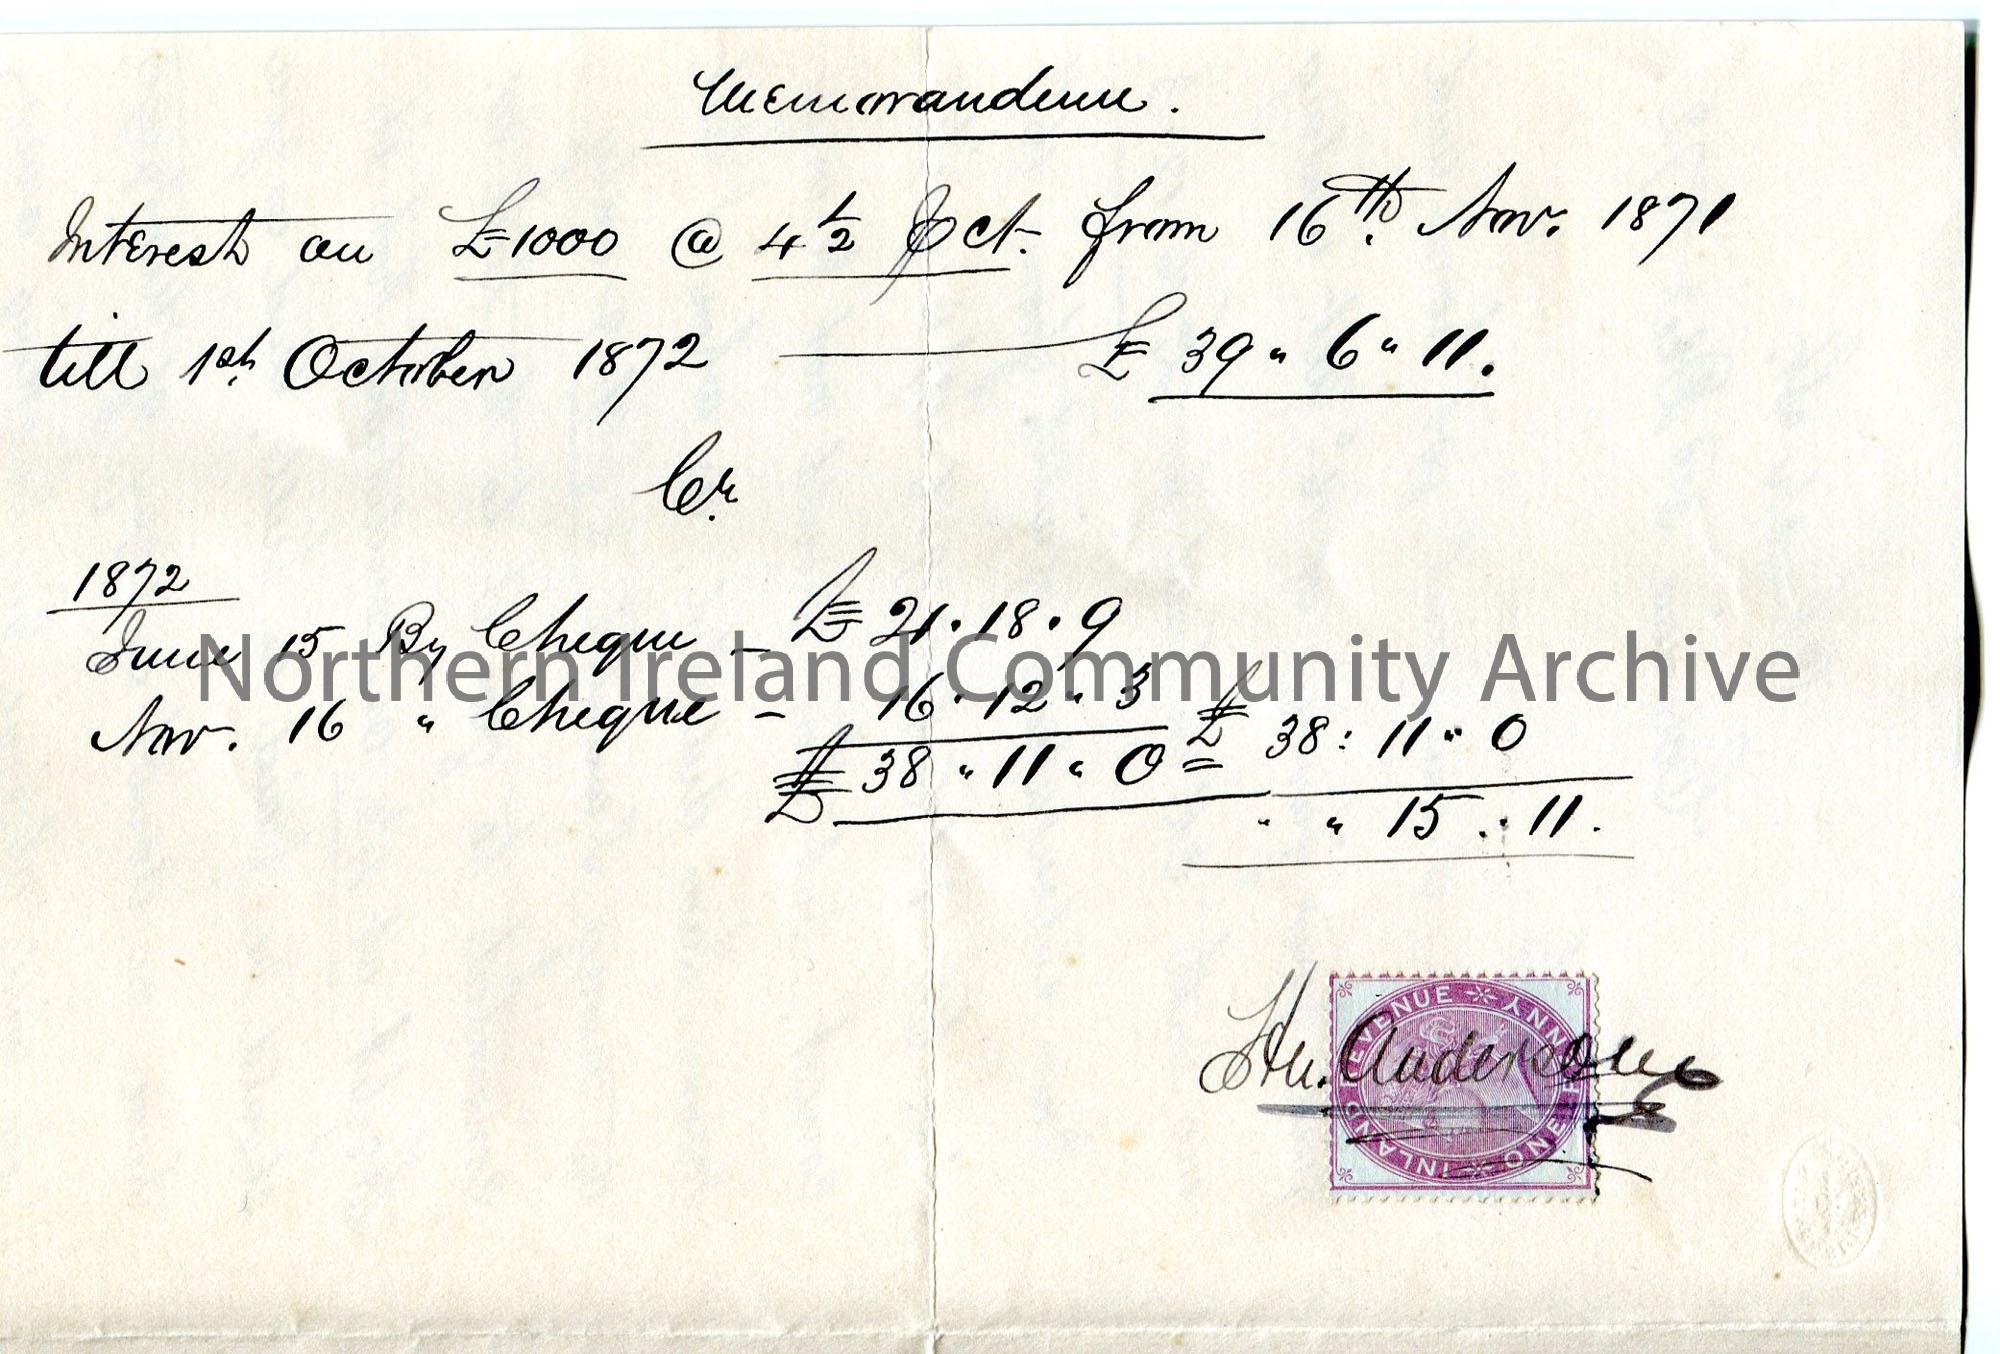 Memorandum.
Interest on £1000 @ 4½ ⅌ Ct. from 16th. Nov. 1871
till 1st. October 1872 — £ 39 " 6 " 11.
Cr.
1872
June 15 By Cheque - £ 21 . 18 . 9
Nov. 16 " Cheque - 16 . 12 . 3
£ 38 " 11 " 0 = £ 38 : 11 " 0
" " 15 . : 11.
Northern Ireland Community Archive
Anderson
INLAND REVENUE ONE PENNY